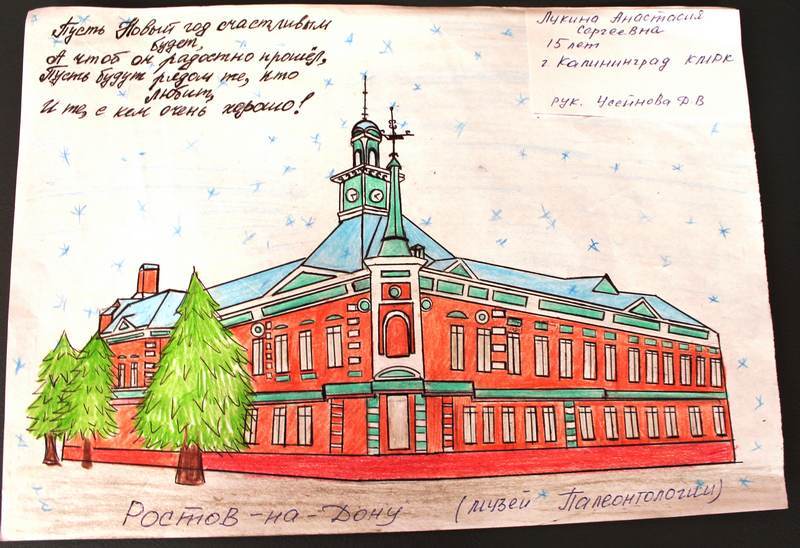 Пусть Новый год счастливым
будет,
А чтоб он радостно прошёл,
Пусть будут рядом те, кто
любит,
И те, с кем очень хорошо!
Лукина Анастасия
Сергеевна
15 лет
г Калининград КМРК
рук. Усейнова Д В
Ростов-на-Дону (музей Палеонтологии)